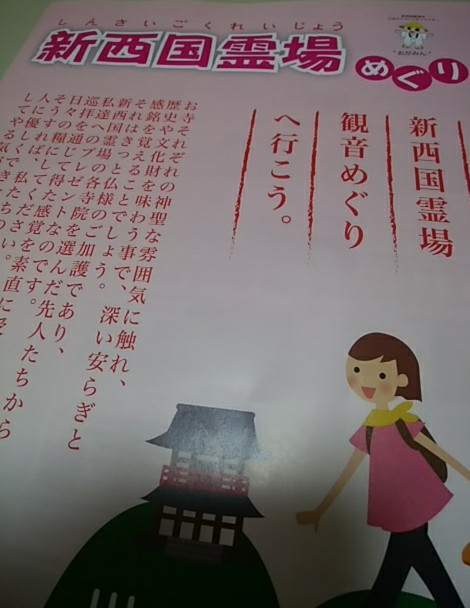 しんさいごくれいじょう
新西国霊場
めぐり
"おがみん"
新西国霊場
観音めぐり
へ行こう。
お寺それぞれの神聖な雰囲気に触れ、
歴史や文化財を味わう事で、深い安らぎと
感銘を覚えることでしょう。
仏様のご加護であり、
新西国霊場各寺院を選んだ先人たちから
私達へのプレゼントなのです。